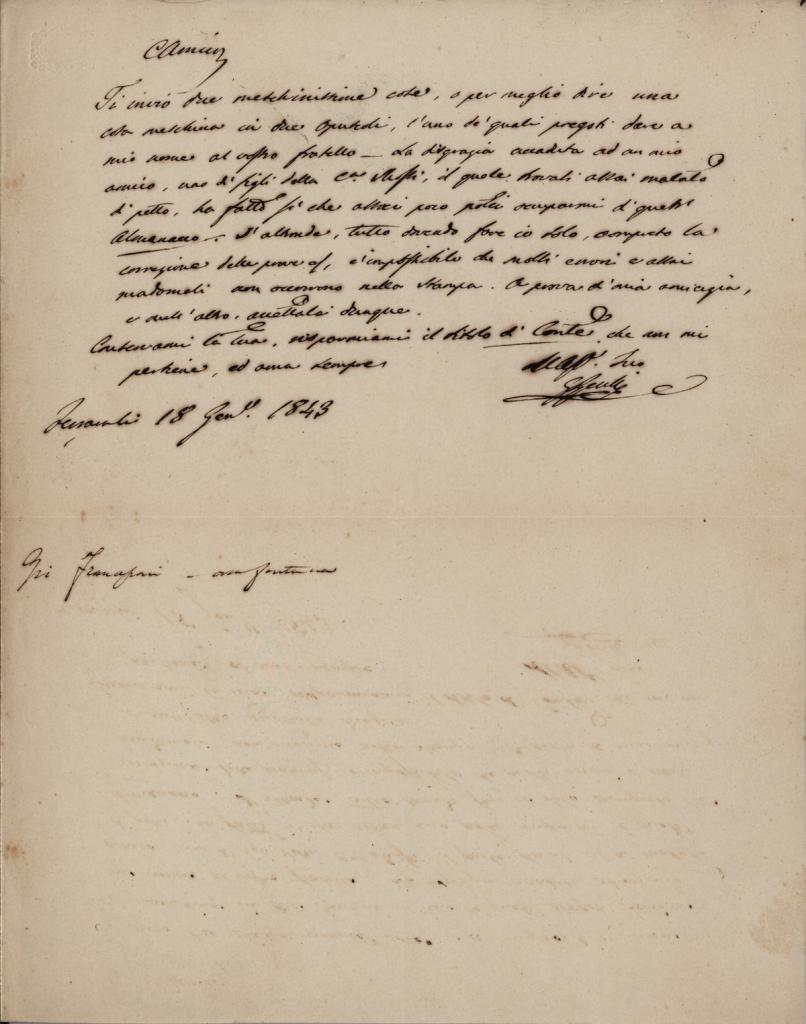 C Amico
Ti invio due meschinissime cose, o per meglio dire una
cosa meschina in due opuscoli, l'uno de' quali pregoti dare a
mio nome al vostro fratello — La disgrazia accaduta ad un mio
amico, uno di figli della il quale trovasi assai malato
di petto, ha fatto sì che assai poco potei occuparmi di quest'
Almanacco. D'altronde, tutto dovendo fare io solo, compreso la
correzione delle prove è impossibile che molti errori e assai
madornali non occorrono nella stampa. A prova di mia amicizia,
e null'altro, accettala dunque.
Conservami la tua, risparmiami il titolo di Conte che non mi
perviene, ed ama sempre
Il tuo
18 Genn. 1843